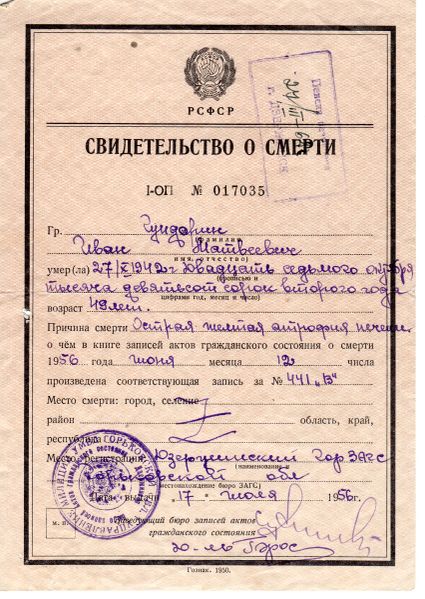 РСФСР
СВИДЕТЕЛЬСТВО О СМЕРТИ
I-ОП № 017035
Гр. Гундарин
(фамилия)
Иван Матвеевич
имя, отчество)
умер(ла) 27/X 1942 г Двадцать седьмого октября
(прописью и
тысяча девятьсот сорок второго года
цифрами год, месяц и число)
возраст 49 лет.
Причина смерти Острая желтая атрофия печени,
о чём в книге записей актов гражданского состояния о смерти
1956 года июня месяца 12 числа
произведена соответствующая запись за № 441 „В"
Место смерти: город, селение
район область, край,
республика
Место регистрации Дзержинский Гор ЗАГС
(наименование и
Горьковской обл
местонахождение бюро ЗАГС)
Дата выдачи 17 июля 1956 г.
М. П. Заведующий бюро записей актов
гражданского состояния
Гознак. 1950.